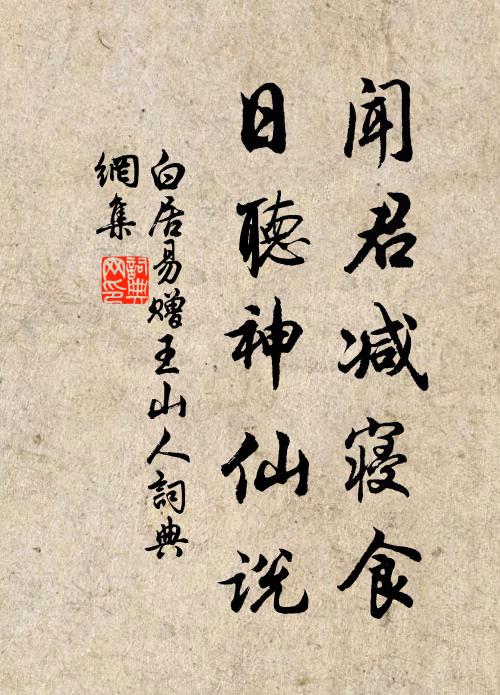 闻君减寝食
日聽神仙说
白居易赠王山人詞典
網集
詞典網印